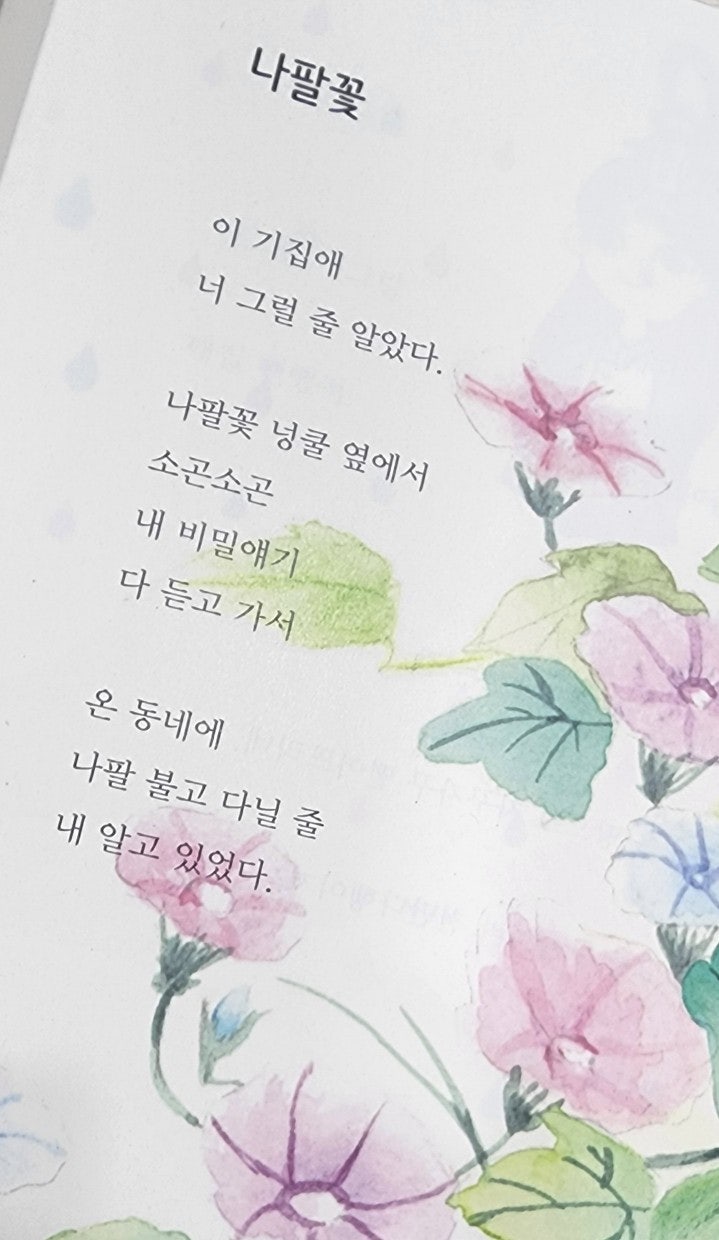 나팔꽃
이 기집애
너 그럴 줄 알았다.
나팔꽃 넝쿨 옆에서
소곤소곤
내 비밀얘기
다 듣고 가서
온 동네에
나팔 불고 다닐 줄
내 알고 있었다.